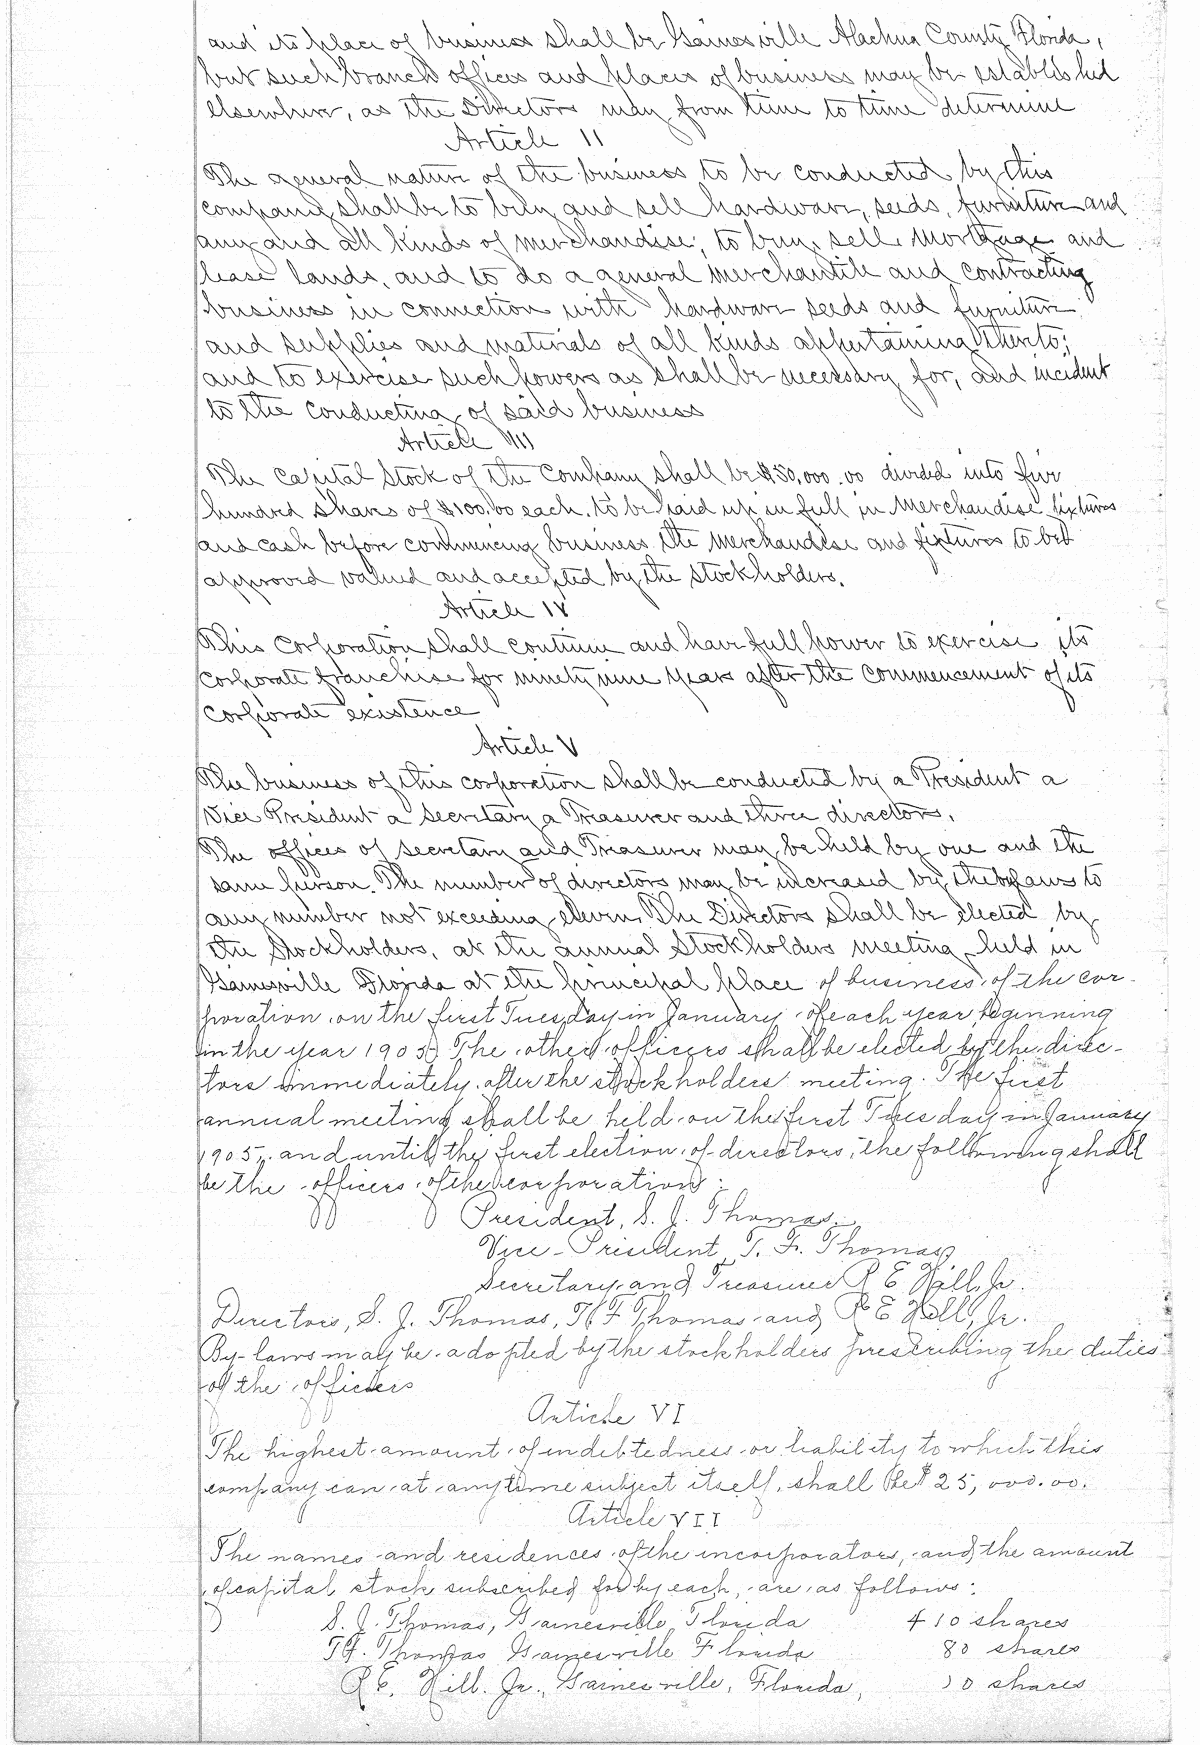 and its place of business shall be Gainesville Alachua County Florida,
but such branch offices and places of business may be established
elsewhere, as the Directors may from time to time determine
Article II
The general nature of the business to be conducted by this
company shall be to buy and sell hardware, seeds, furniture and
any and all kinds of merchandise, to buy, sell, mortgage and
lease lands, and to do a general merchantile and contracting
business in connection with hardware seeds and furniture
and supplies and materials of all kinds appertaining thereto;
and to exercise such powers as shall be necessary for, and incident
to the conducting of said business
Article III
The Capital Stock of the Company shall be $50,000.00 divided into five
hundred shares of $100.00 each. to be paid up in full in Merchandise fixtures
and cash before commencing business the Merchandise and fixtures to be
approved valued and accepted by the Stockholders.
Article IV
This Corporation shall continue and have full power to exercise its
corporate franchise for ninety nine years after the commencement of its
corporate existence
Article V
The business of this corporation shall be conducted by a President a
Vice President a Secretary a Treasurer and three directors.
The offices of Secretary and Treasurer may be held by one and the
same person. The number of directors may be increased by the bylaws to
any number not exceeding eleven. The Directors shall be elected by
the Stockholders, at the annual Stockholders meeting held in
Gainesville Florida at the principal place of business of the cor-
poration on the first Tuesday in January of each year, beginning
in the year 1905. The other officers shall be elected by the direc-
tors immediately after the stockholders meeting. The first
annual meeting shall be held on the first Tuesday in January
1905, and until the first election of directors, the following shall
be the officers of the corporation:
President, S. J. Thomas.
Vice-President, T. F. Thomas
Secretary and Treasurer R E Hill, Jr.
Directors, S. J. Thomas, T F Thomas and R E Hill, Jr.
By-laws may be adopted by the stockholders prescribing the duties
of the officers
Article VI
The highest amount of indebtedness or liability to which this
company can at anytime subject itself, shall be $25,000.00.
Article VII
The names and residences of the incorporators, and the amount
of capital stock subscribed for by each, are as follows:
S. J. Thomas, Gainesville, Florida 410 shares
T F. Thomas Gainesville Florida 80 shares
R E. Hill. Jr., Gainesville, Florida, 10 shares